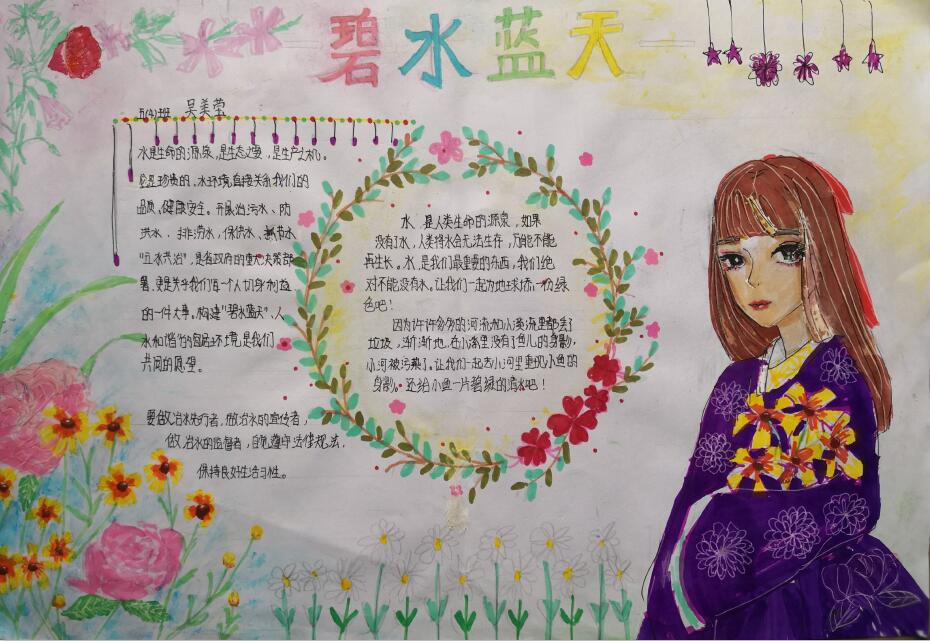 碧水蓝天
五(4)班 吴美莹
水是生命的源泉,是生态之要,是生产之机。
它是珍贵的,水环境直接关系我们的
品质、健康安全。开展治污水、防
洪水、排涝水,保供水、抓节水
"五水共治",是省政府的重大决策部
署,更是关乎我们每一个人切身利益
的一件大事。构建"碧水蓝天",人
水和谐的自居环境,是我们
共同的愿望。
要做治水先行者,做治水的宣传者,
做治水的监督者,自觉遵守法律规法,
保持良好生活习性。
水,是人类生命的源泉,如果
没有了水,人类将永会无法生存,万物不能
再生长。水,是我们最重要的东西,我们绝
对不能没有水。让我们一起为地球添一份绿
色吧!
因为许许多多的河流和小溪流里都丢了
垃圾,渐渐地,在小溪里没有了鱼儿的身影,
小河被污染了。让我们一起去小河里重现小鱼的
身影。还给小鱼一片碧绿的清水吧!